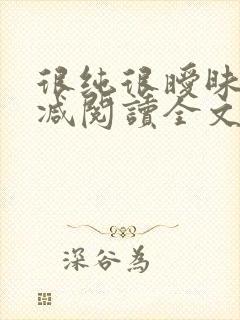 很纯很曖昧
减閱讀全文
深谷為